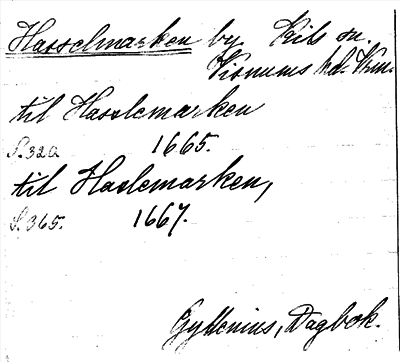 Hasselmarken by Kils sn.
Visnums hd. Vrm.
til Hasslemarken
S. 320 1665.
til Haslemarken,
S. 365. 1667.
Gyllenius, Dagbok.